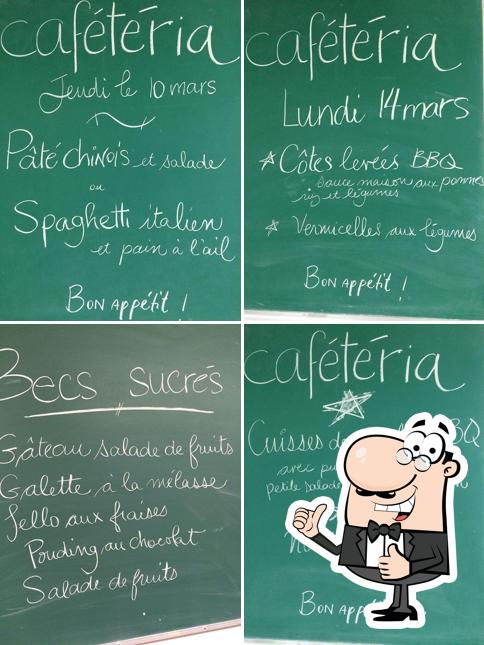 cafétéria
Jeudi le 10 mars
Pâté chinois et salade
ou
Spaghetti italien
et pain à l'ail
Bon appétit !
cafétéria
Lundi 14 mars
Côtes levées BBQ
sauce maison aux pommes
riz et légumes
Vermicelles aux légumes
Bon appétit !
Becs sucrés
Gâteau salade de fruits
Galette à la mélasse
Jello aux fraises
Pouding au chocolat
Salade de fruits
cafétéria
Cuisses
avec
Petite salade
Bon